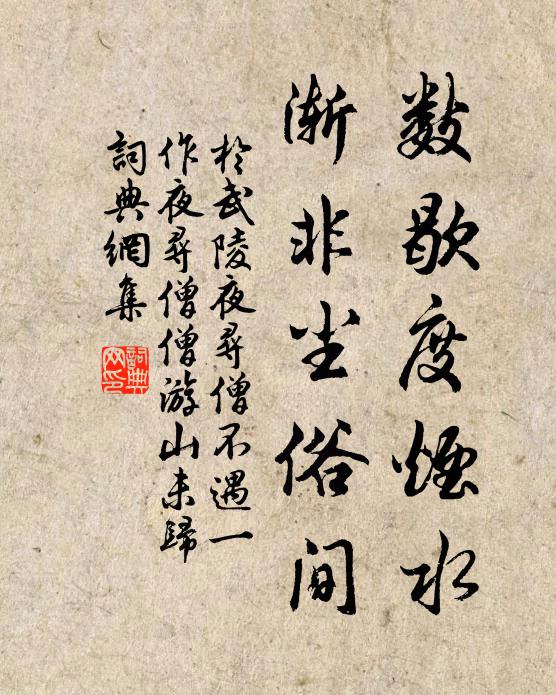 数歇度煙水
漸非尘俗间
於武陵夜尋僧不遇一
作夜尋僧僧游山未歸
詞典網集
詞典
网印